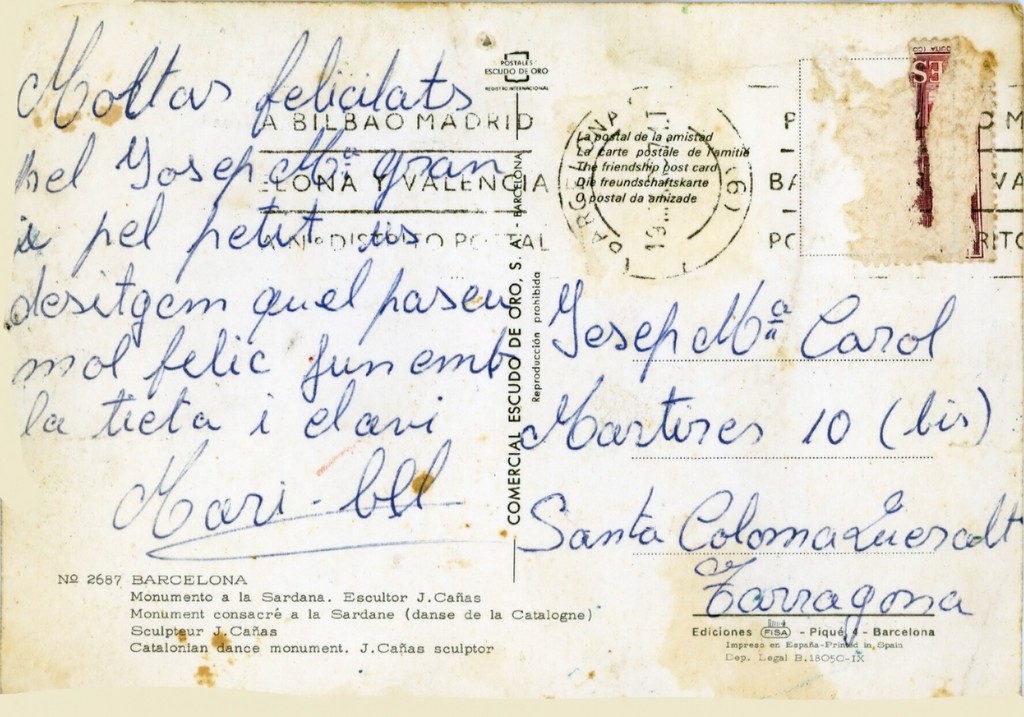 Moltas felicitats
pel Josep Mª gran
i pel petit us
desitgem quel paseu
mol felic jun emb
la tieta i elavi
Mari-bll
POSTALES
ESCUDO DE ORO
REGISTRO INTERNACIONAL
A BILBAO MADRID
ELONA Y VALENCIA
Nº DISTRITO POSTAL
COMERCIAL ESCUDO DE ORO, S. A. - BARCELONA
Reproducción prohibida
BARCELONA
La postal de la amistad
La carte postale de l'amitié
The friendship post card
Die freundschaftskarte
O postal da amizade
P
BA
PO
O M
VA
RITO
Josep Mª Carol
Martires 10 (bis)
Santa Coloma Queralt
Tarragona
Nº 2687 BARCELONA
Monumento a la Sardana. Escultor J. Cañas
Monument consacré a la Sardane (danse de la Catalogne)
Sculpteur J. Cañas
Catalonian dance monument. J. Cañas sculptor
Ediciones FISA - Piqué, 4 - Barcelona
Impreso en España-Printed in Spain
Dep. Legal B. 18050-IX